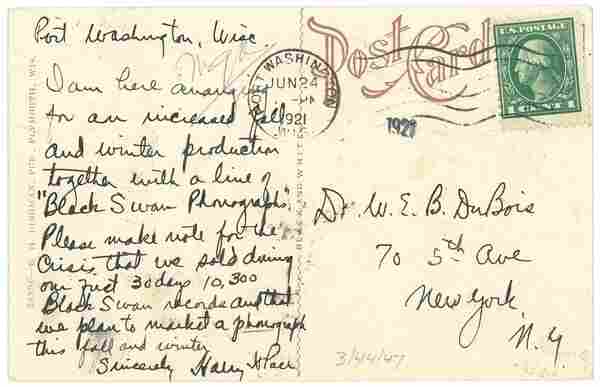 Port Washington, Wisc
I am here arranging
for an increased fall
and winter production
together with a line of
"Black Swan Phonographs".
Please make note for the
Crisis that we sold during
our first 30 days 10,300
Black Swan records and that
we plan to market a phonograph
this fall and winter
Sincerely Harry H Pace
Post Card
PORT WASHINGTON
JUN 24
1921
WIS.
U.S. POSTAGE
1 CENT 1
1921
Dr. W. E. B. DuBois
70 5th Ave
New York
N.Y.
3/44/47